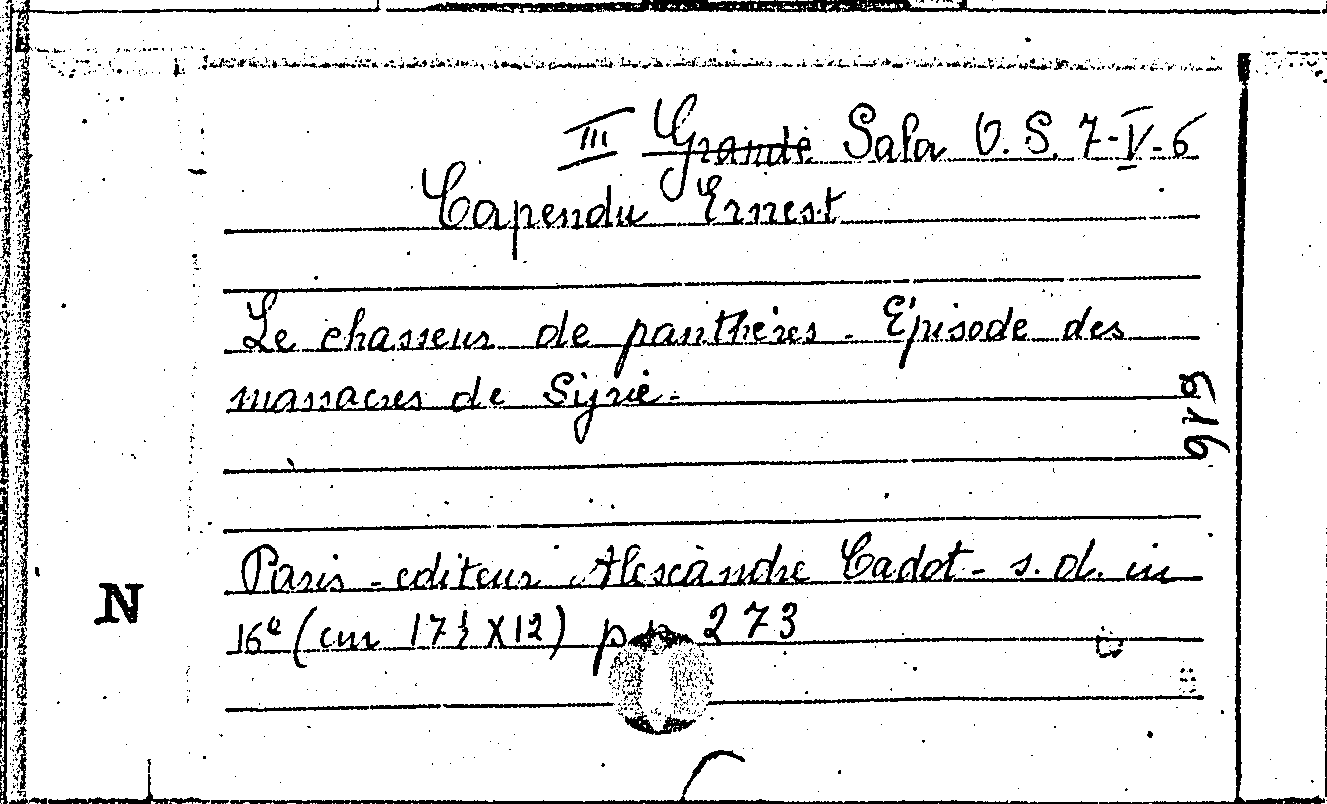 III Grande Sala O. S. 7-V-6
Capendu Ernest
Le chasseur de panthères - Episode des
massacres de Syrie -
Paris - editeur Alexandre Cadot - s. d. in
16e (cm 17½ X 12) pp 273
N